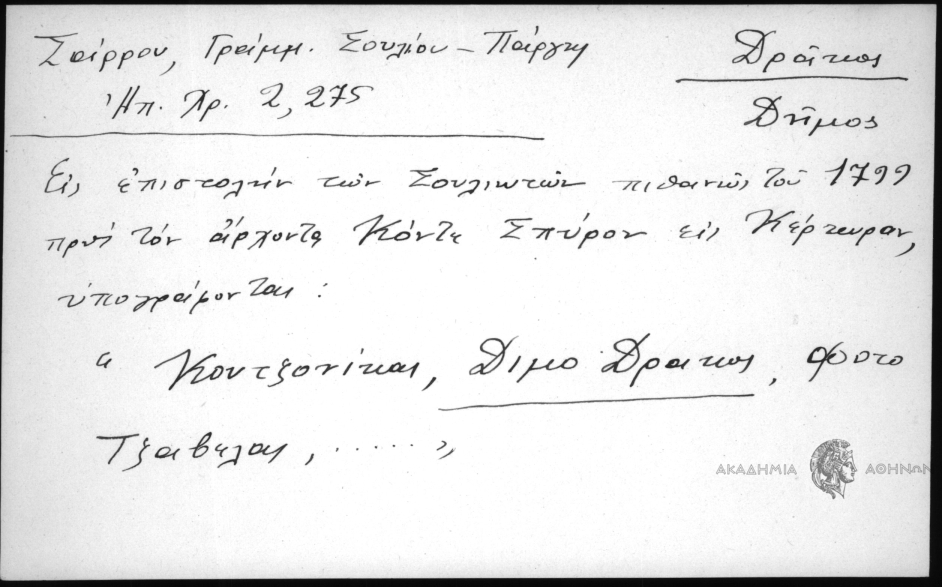 Σάρρου, Γράμμ. Σουλίου - Πάργης
Ἠπ. Χρ. 2, 275
Δράκος
Δῆμος
Εἰς ἐπιστολὴν τῶν Σουλιωτῶν πιθανῶς τοῦ 1799
πρὸς τὸν ἄρχοντα Κόντε Σπύρον εἰς Κέρκυραν,
ὑπογράφονται :
“ Κουτζονίκας, Διμο Δρακος, Φοτο
Τζαβελας, ...... ”
ΑΚΑΔΗΜΙΑ ΑΘΗΝΩΝ